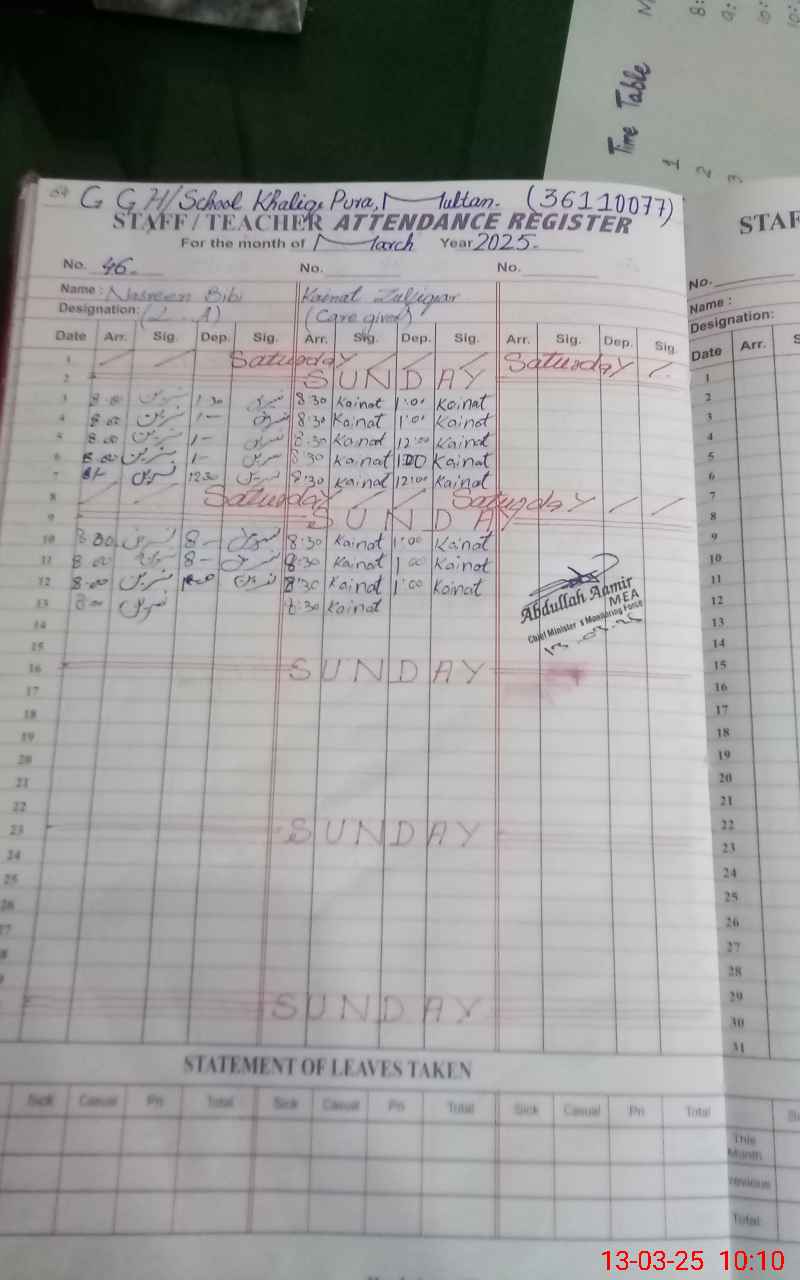 Time Table
1
2
3
G G H/School Khalige Pura, Multan. (36110077)
STAFF/TEACHER ATTENDANCE REGISTER
For the month of March Year 2025.
No. 46. No. No.
Name: Nasreen Bibi Kainat Zulfiqar
Designation: (L.A) (Care giver)
Date Arr. Sig. Dep. Sig. Arr. Sig. Dep. Sig. Arr. Sig. Dep. Sig.
1 Saturday Saturday
2 SUNDAY
3 8:00 نسرین 1:30 نسرین 8:30 Kainat 1:00 Kainat
4 8:00 نسرین 1- نسرین 8:30 Kainat 1:00 Kainat
5 8:00 نسرین 1- نسرین 8:30 Kainat 12:00 Kainat
6 8:00 نسرین 1- نسرین 8:30 Kainat 1:00 Kainat
7 8/- نسرین 1230 نسرین 8:30 Kainat 12:00 Kainat
8 Saturday Saturday
9 SUNDAY
10 8:00 نسرین 8- نسرین 8:30 Kainat 1:00 Kainat
11 8:00 نسرین 8- نسرین 8:30 Kainat 1:00 Kainat
12 8:00 نسرین نسرین 8:30 Kainat 1:00 Kainat
13 8:00 نسرین 8:30 Kainat
Abdullah Aamir
MEA
Chief Minister's Monitoring Force
13-03-25
14
15
16 SUNDAY
17
18
19
20
21
22
23 SUNDAY
24
25
26
27
SUNDAY
STATEMENT OF LEAVES TAKEN
Sick Casual Pri Total Sick Casual Pri Total Sick Casual Pri Total
STAF
No.
Name :
Designation:
Date Arr.
1
2
3
4
5
6
7
8
9
10
11
12
13
14
15
16
17
18
19
20
21
22
23
24
25
26
27
28
29
30
31
This Month
Total
13-03-25 10:10